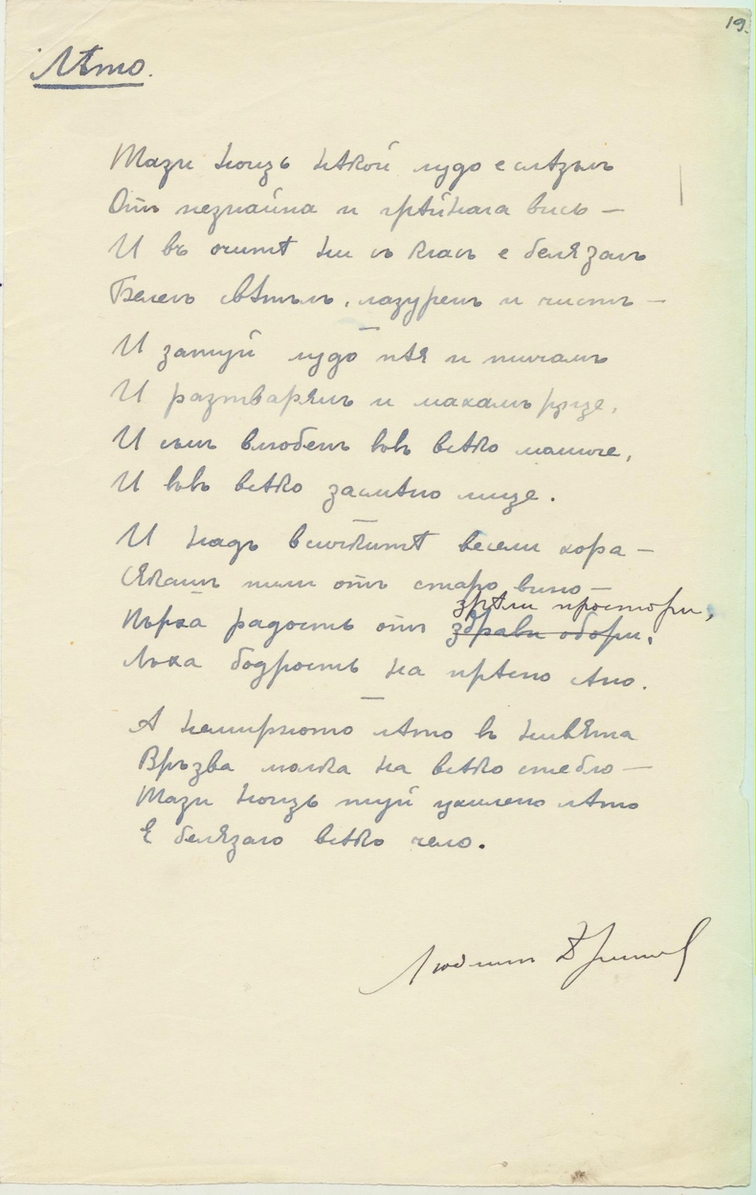 19.
Лѣто.
Тази нощь нѣкой лудо е слѣзълъ
Отъ незнайна и грѣйнала вись —
И въ очитѣ ни съ класъ е белязалъ
Белегъ свѣтълъ, лазуренъ и чистъ —
И затуй лудо пѣя и тичамъ
И разтварямъ и махамъ рѫце,
И съмъ влюбенъ въвъ всѣко момиче,
И въвъ всѣко засмѣно лице.
И надъ всичкитѣ весели хора —
Сѣкашъ пили отъ старо вино —
зрѣли простори,
Пърха радость отъ здрави обори,
Лъха бодрость на прѣсно сѣно.
А немирното лѣто въ нивята
Връзва на всѣко стебло —
Тази нощь туй лѣто
Е белязало всѣко чело.
Людмилъ